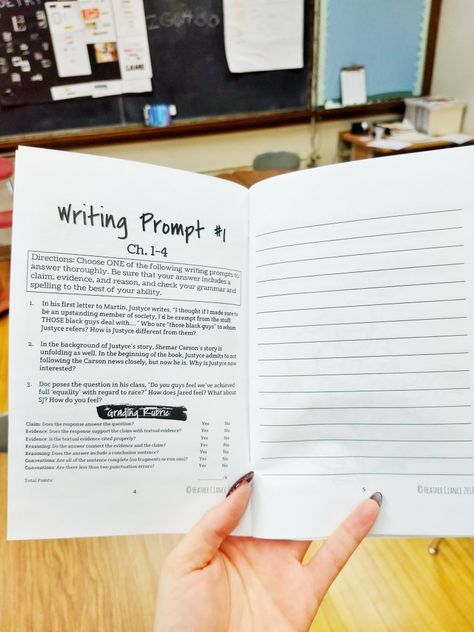 Writing Prompt #1
Ch. 1-4
Directions: Choose ONE of the following writing prompts to
answer thoroughly. Be sure that your answer includes a
claim, evidence, and reason, and check your grammar and
spelling to the best of your ability.
1. In his first letter to Martin, Justyce writes, "I thought if I made sure to
be an upstanding member of society, I'd be exempt from the stuff
THOSE black guys deal with...." Who are "those black guys" to whom
Justyce refers? How is Justyce different from them?
2. In the background of Justyce's story, Shemar Carson's story is
unfolding as well. In the beginning of the book, Justyce admits to not
following the Carson news closely, but now he is. Why is Justyce now
interested?
3. Doc poses the question in his class, "Do you guys feel we've achieved
full 'equality' with regard to race?" How does Jared feel? What about
SJ? How do you feel?
Grading Rubric:
Claim: Does the response answer the question? Yes No
Evidence: Does the response support the claim with textual evidence? Yes No
Evidence: Is the textual evidence cited properly? Yes No
Reasoning: Do the answer connect the evidence and the claim? Yes No
Reasoning: Does the answer include a conclusion sentence? Yes No
Conventions: Are all of the sentence complete (no fragments or run ons)? Yes No
Conventions: Are there less than two punctuation errors? Yes No
Total Points:
4
© Heather Clance
5
© Heather Clance